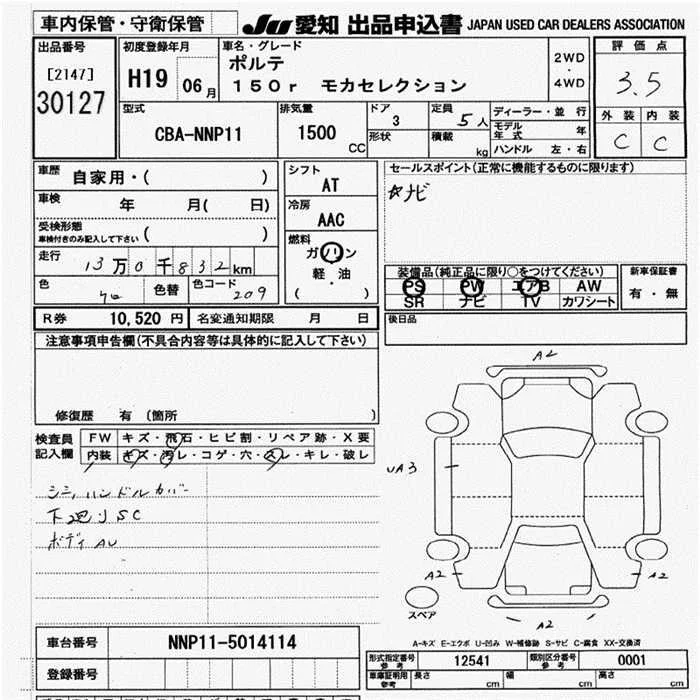 車内保管・守衛保管
JU 愛知 出品申込書 JAPAN USED CAR DEALERS ASSOCIATION
出品番号
[2147]
30127
初度登録年月
H19 06月
車名・グレード
ポルテ
150r モカセレクション
2WD
・
4WD
評価点
3.5
外装 内装
C C
型式
CBA-NNP11
排気量
1500
CC
ドア
3
形状
定員
5人
積載
kg
ディーラー・並行
モデル年式 年
ハンドル 左・右
車歴
自家用・( )
車検
年 月( 日)
受検形態
車検付きのみ記入して下さい ( )
走行
13万0千832km
色
色替
色コード
209
シフト
AT
冷房
AAC
燃料
ガソリン
軽・油
( )
セールスポイント(正常に機能するものに限ります)
☆ナビ
装備品(純正品に限り○をつけてください)
PS PW エアB AW
SR ナビ TV カワシート
新車保証書
有・無
後日品
R券 10,520円 名変通知期限 月 日
注意事項申告欄(不具合内容等は具体的に記入して下さい)
修復歴 有 (箇所 )
検査員
記入欄
FW キズ・飛石・ヒビ割・リペア跡・X要
内装 キズ・汚レ・コゲ・穴・スレ・キレ・破レ
シミ,ハンドルカバー
下廻りSC
ボディAU
A2
UA3
A2
A2
A2
スペア
車台番号 NNP11-5014114
登録番号
A-キズ E-エクボ U-凹み W-補修跡 S-サビ C-腐食 XX-交換済
形式指定番号 参考 12541 類別区分番号 参考 0001
車庫証明用 参考 長さ cm 幅 cm 高さ cm